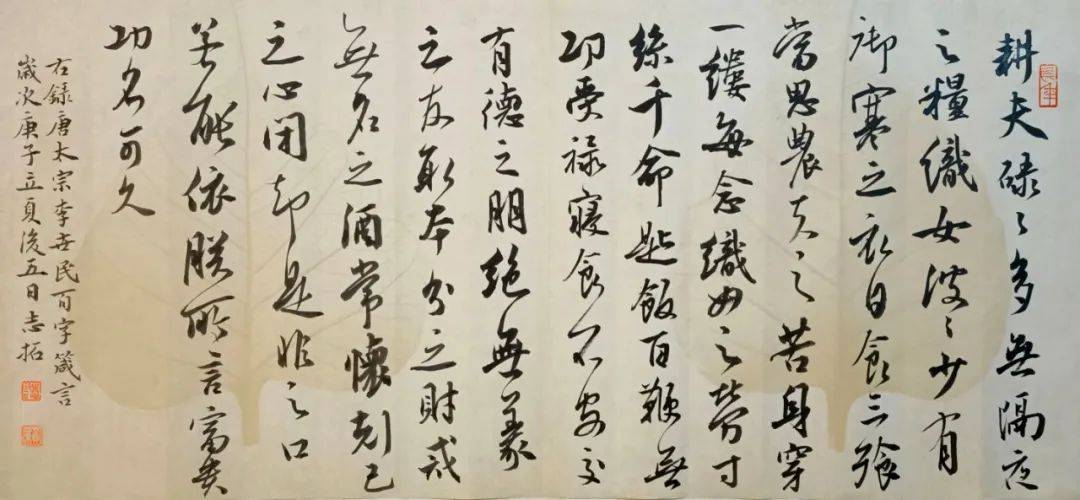 耕夫碌〻多無隔夜
之糧織女波〻少有
御寒之衣日食三飡
當思農夫之苦身穿
一縷每念織女之勞寸
絲千命匙飯百鞭無
功受祿寢食不安交
有德之朋絕無義
之友取本分之財戒
無名之酒常懷剋己
之心閉却是非之口
若能依朕所言富貴
功名可久
右錄唐太宗李世民百字箴言
歲次庚子立夏後五日志拓